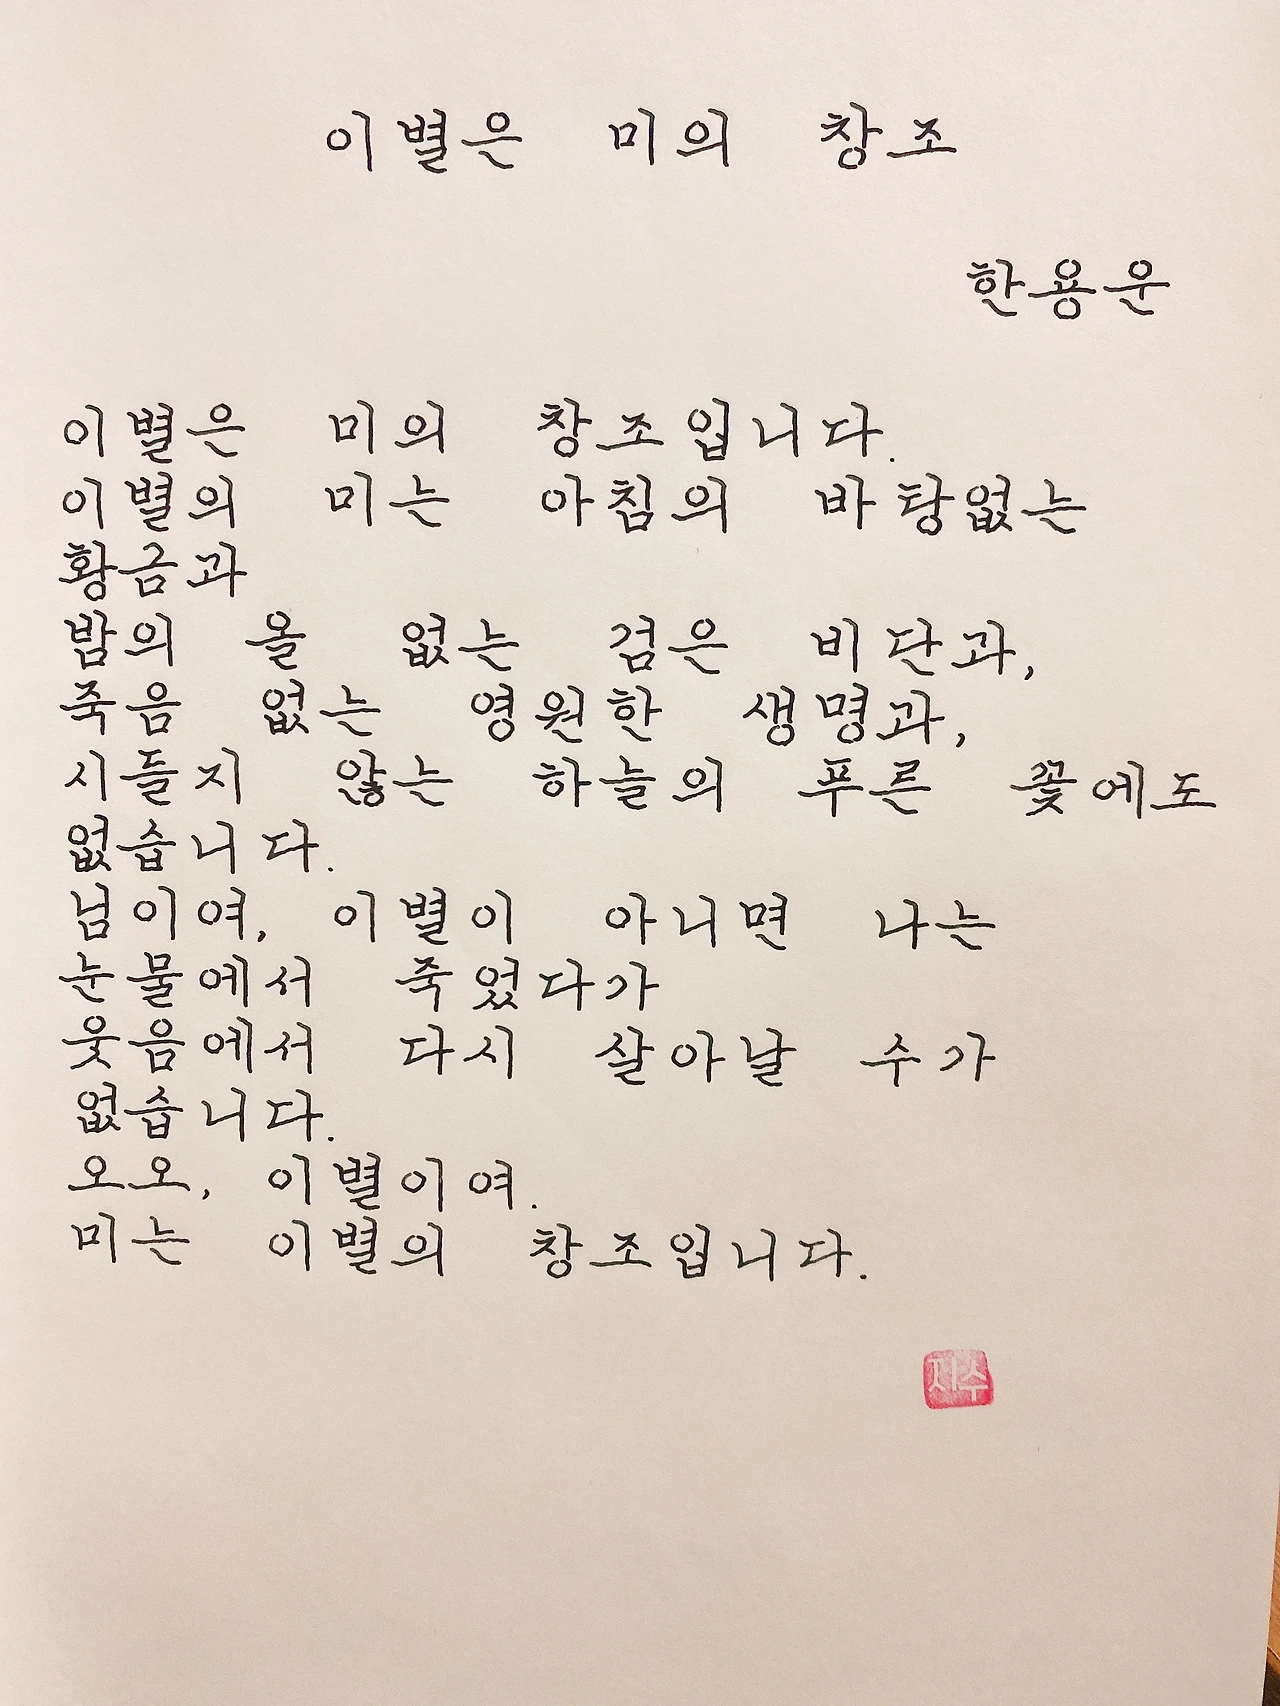 이별은 미의 창조
한용운
이별은 미의 창조입니다.
이별의 미는 아침의 바탕없는
황금과
밤의 올 없는 검은 비단과,
죽음 없는 영원한 생명과,
시들지 않는 하늘의 푸른 꽃에도
없습니다.
님이여, 이별이 아니면 나는
눈물에서 죽었다가
웃음에서 다시 살아날 수가
없습니다.
오오, 이별이여.
미는 이별의 창조입니다.
지수